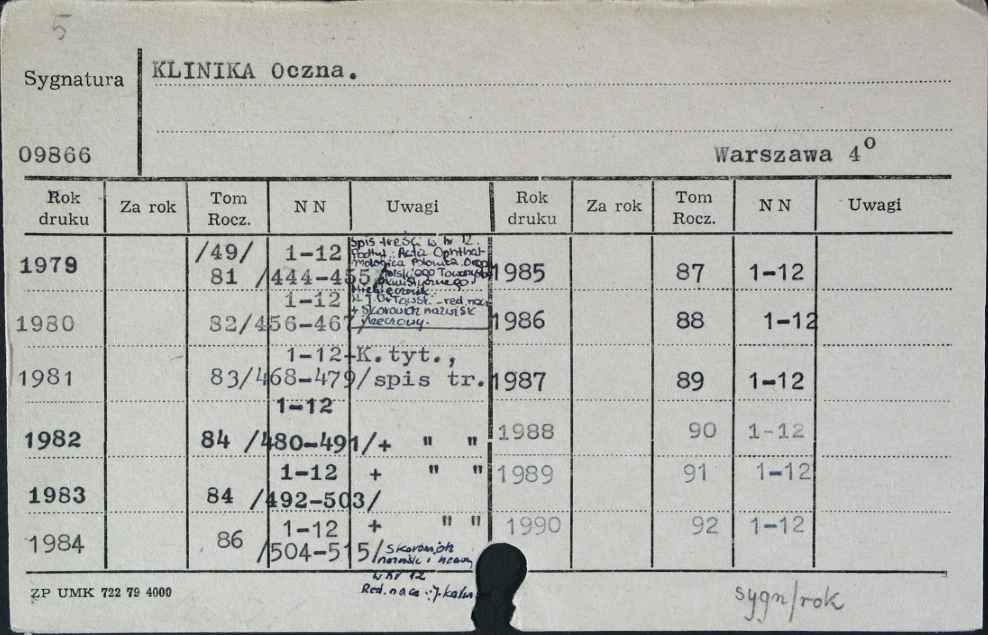 5
Sygnatura KLINIKA Oczna.
09866 Warszawa 4°
Rok druku Za rok Tom Rocz. NN Uwagi Rok druku Za rok Tom Rocz. NN Uwagi
1979 /49/ 81 1-12 /444-455/ Spis treści w nr 12. Podtyt.: Acta Ophthalmologica Polonica. Towarzystwa red. nacz. + Skorowidz nazwisk i rzeczowy.
1985 87 1-12
1980 82 1-12 /456-467/
1986 88 1-12
1981 83 1-12 /468-479/ +K.tyt., spis tr.
1987 89 1-12
1982 84 1-12 /480-491/ + " "
1988 90 1-12
1983 84 1-12 /492-503/ + " "
1989 91 1-12
1984 86 1-12 /504-515/ + " " Skorowidz nazwisk i rzeczowy w nr 12
1990 92 1-12
Red. nacz.: J.
ZP UMK 722 79 4000
sygn/rok